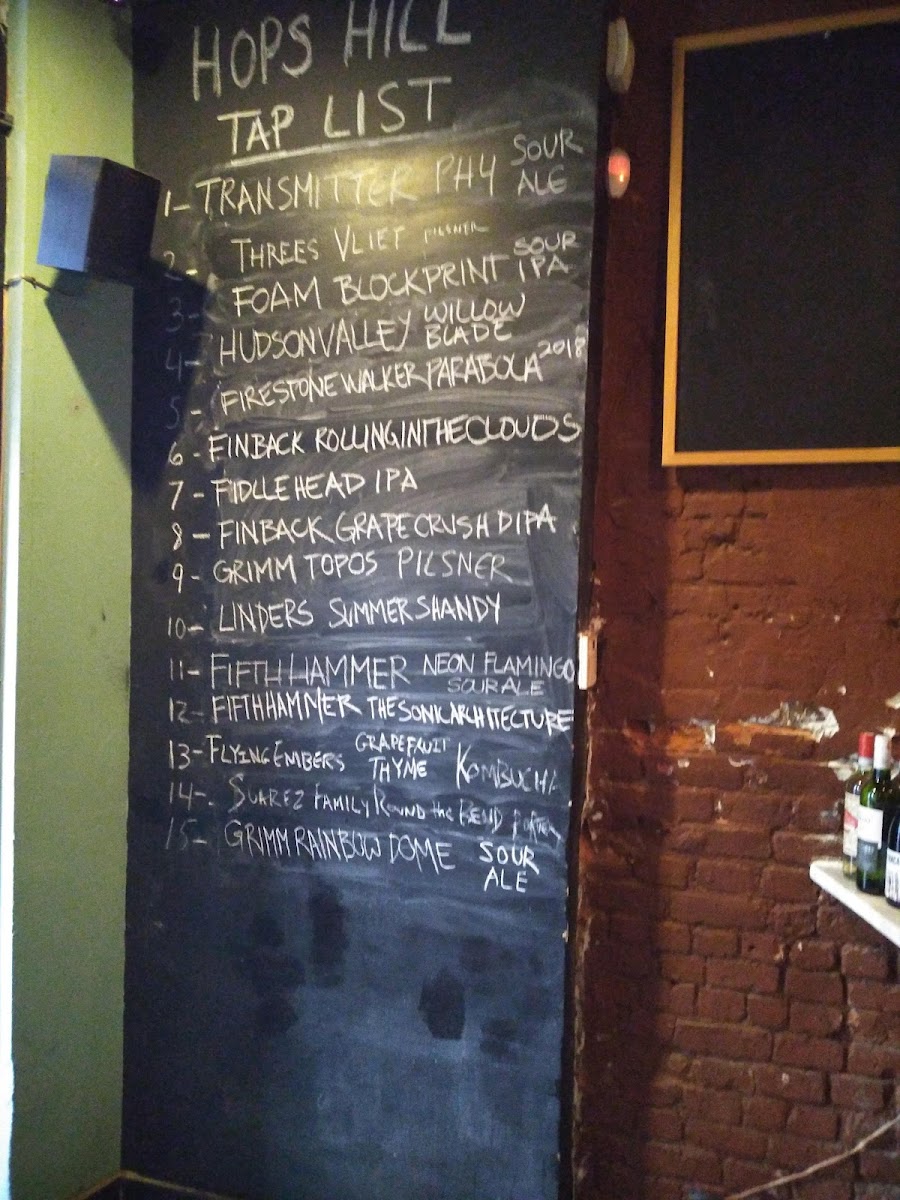 HOPS HILL
TAP LIST
1- TRANSMITTER PH4 SOUR ALE
2- THREES VLIET PILSNER
3- FOAM BLOCKPRINT SOUR IPA
4- HUDSON VALLEY WILLOW BLADE
5- FIRESTONE WALKER PARABOLA 2018
6- FINBACK ROLLING IN THE CLOUDS
7- FIDLLE HEAD IPA
8- FINBACK GRAPE CRUSH DIPA
9- GRIMM TOPOS PILSNER
10- LINDERS SUMMER SHANDY
11- FIFTH HAMMER NEON FLAMINGO SOUR ALE
12- FIFTH HAMMER THE SONIC ARCHITECTURE
13- FLYING EMBERS GRAPEFRUIT THYME KOMBUCHA
14-. SUAREZ FAMILY ROUND the BEND PORTER
15- GRIMM RAINBOW DOME SOUR ALE